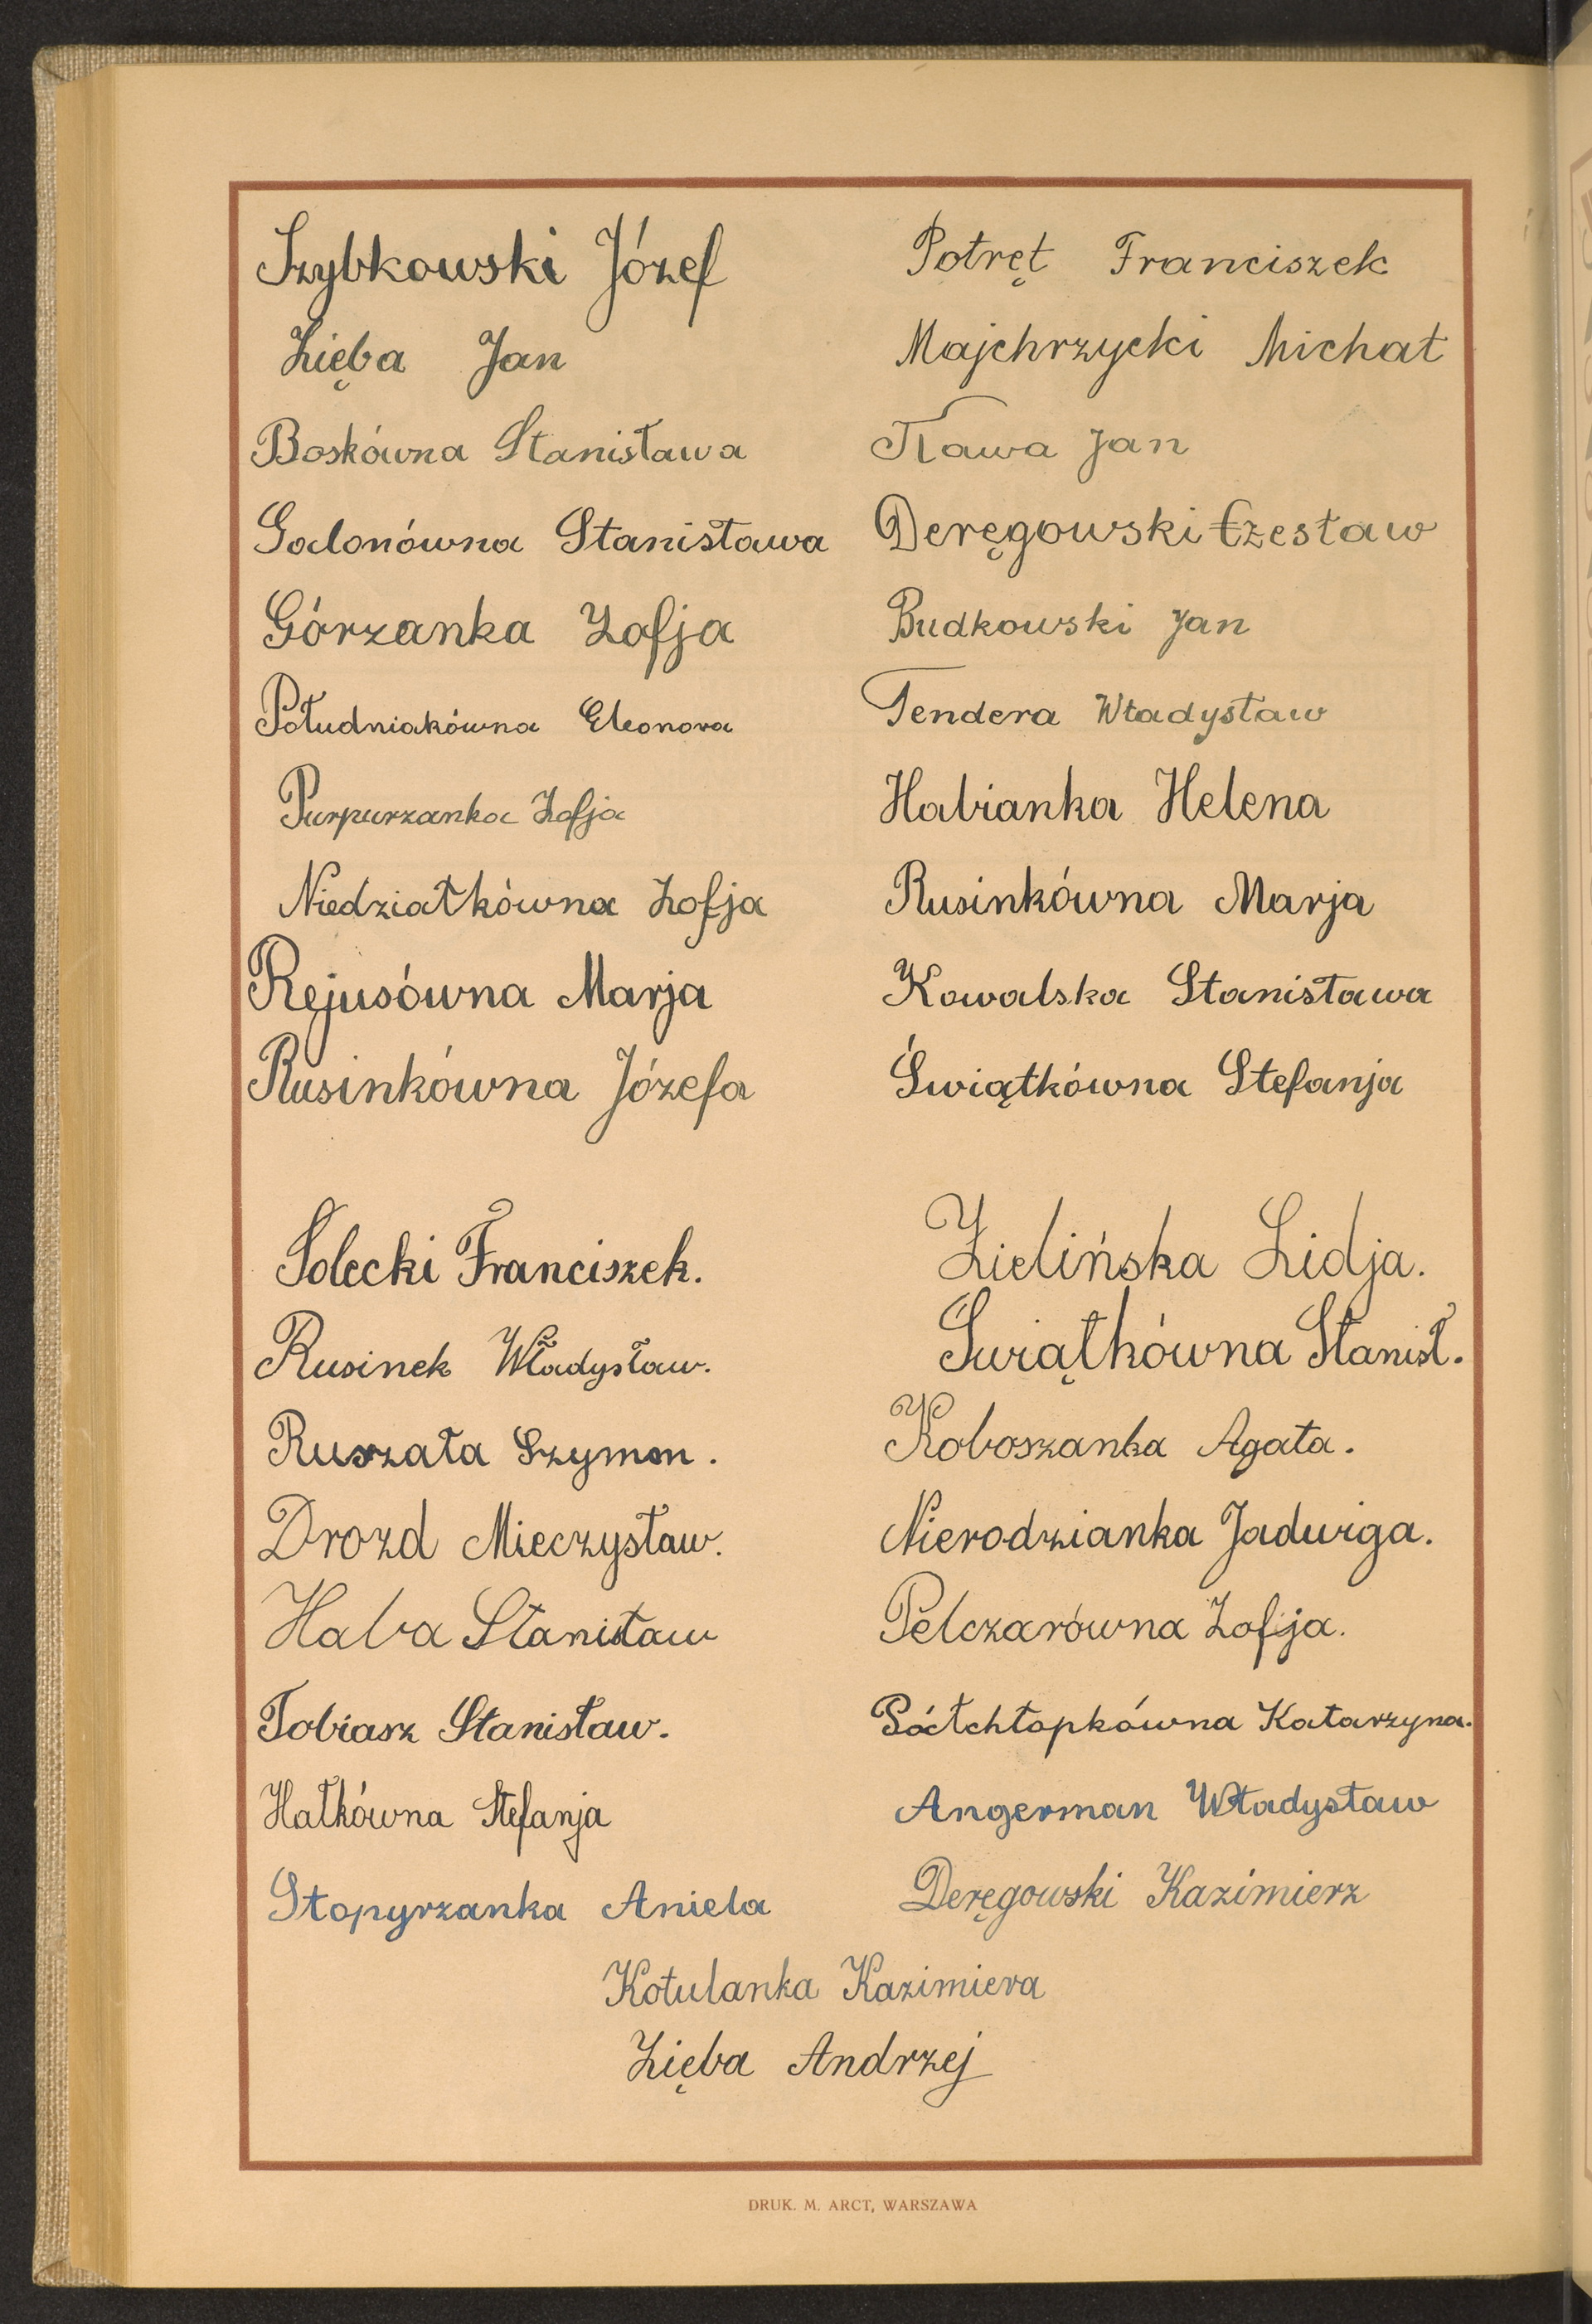 Szybkowski Józef
Zięba Jan
Boskówna Stanisława
Galonówna Stanisława
Górzanka Zofja
Południakówna Eleonora
Purpurzanka Zofja
Niedziałkówna Zofja
Rejusówna Marja
Rusinkówna Józefa
Potręt Franciszek
Majchrzycki Michał
Kawa Jan
Deręgowski Czesław
Budkowski Jan
Tendera Władysław
Habianka Helena
Rusinkówna Marja
Kowalska Stanisława
Świątkówna Stefanja
Solecki Franciszek.
Rusinek Władysław.
Ruszała Szymon.
Drozd Mieczysław.
Haba Stanisław
Tobiasz Stanisław.
Hałkówna Stefanja
Stopyrzanka Aniela
Zielińska Lidja.
Świątkówna Stanisł.
Koboszanka Agata.
Nierodzianka Jadwiga.
Pelczarówna Zofja.
Półchłopkówna Katarzyna.
Angerman Władysław
Deręgowski Kazimierz
Kotulanka Kazimiera
Zięba Andrzej
DRUK. M. ARCT, WARSZAWA